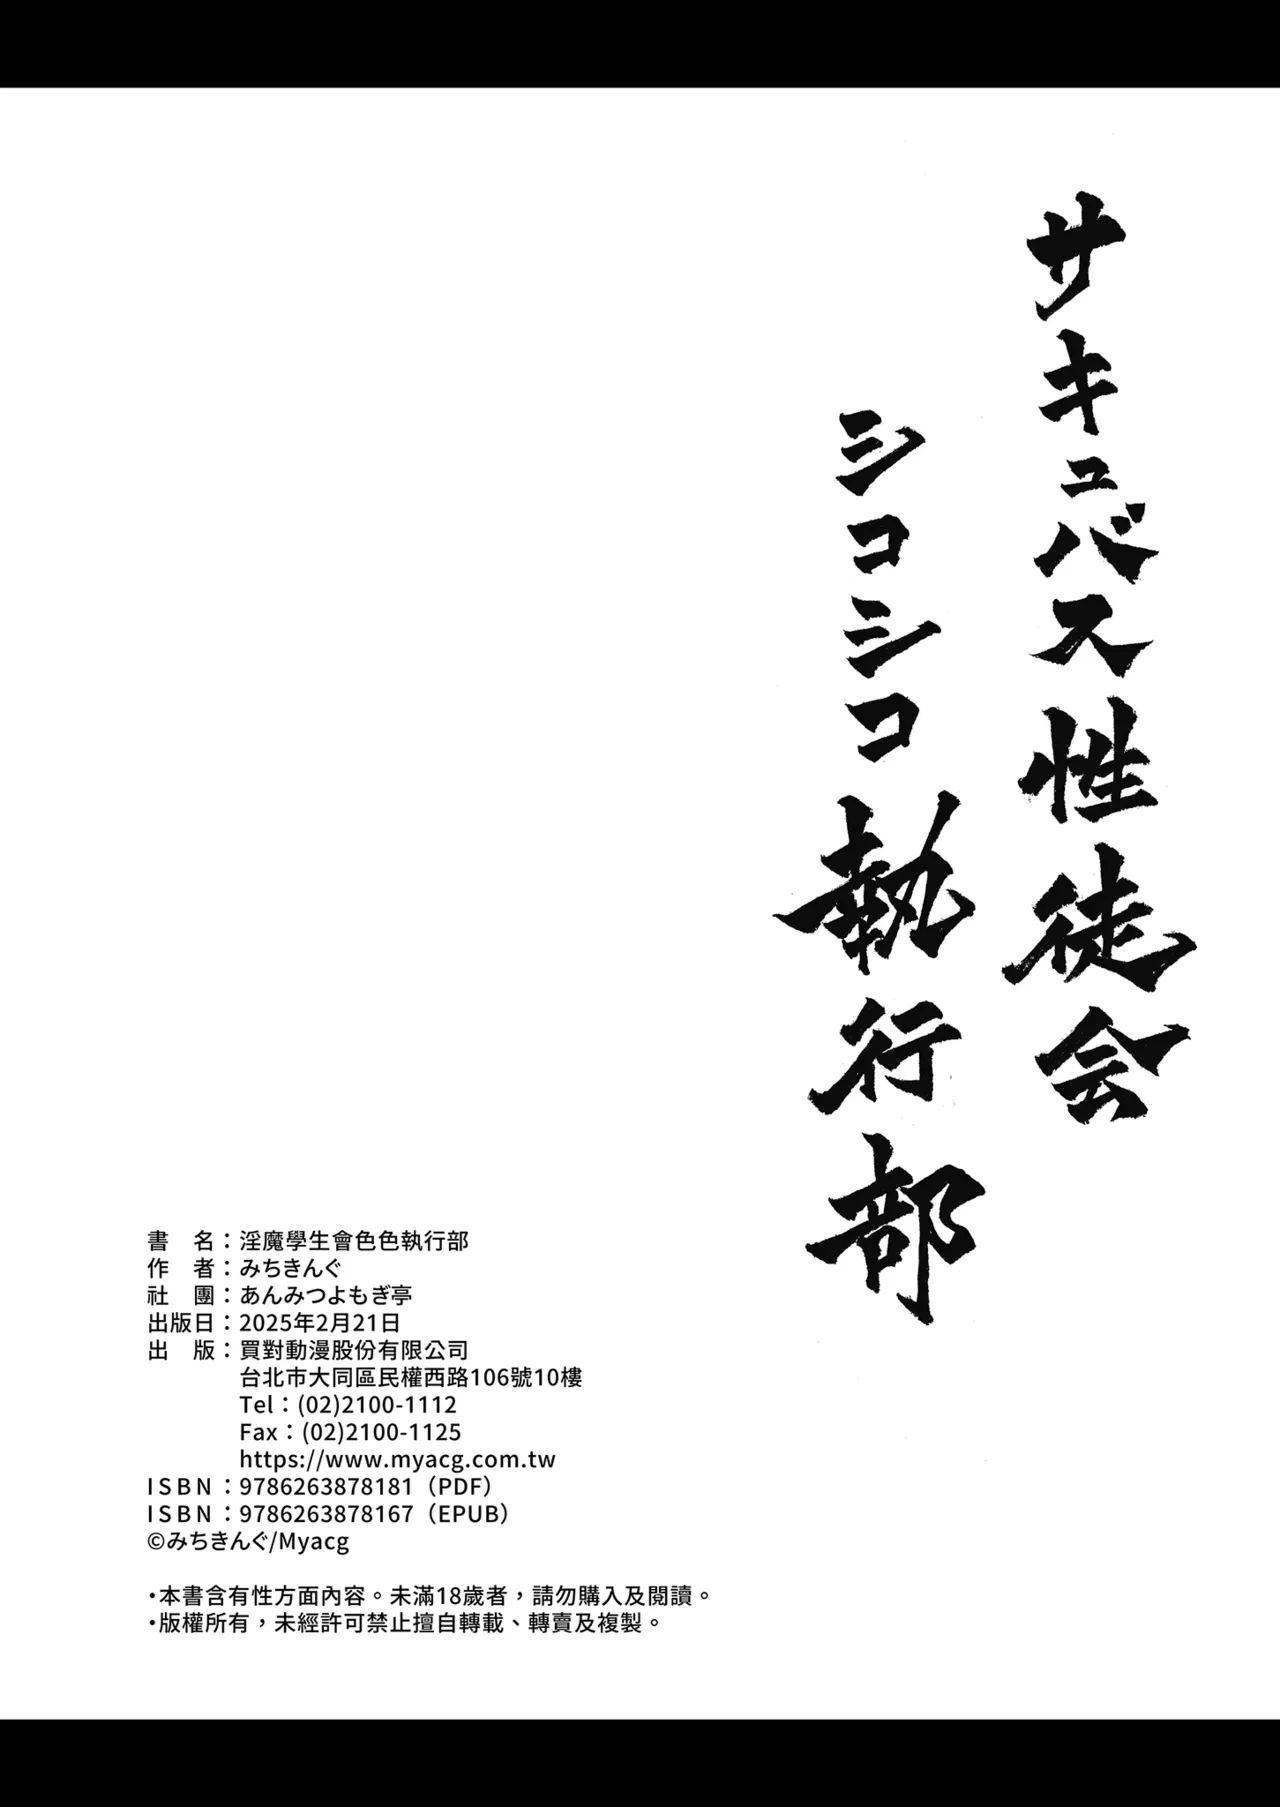 サキュバス性徒会
シコシコ執行部
書　名：淫魔學生會色色執行部
作　者：みちきんぐ
社　團：あんみつよもぎ亭
出版日：2025年2月21日
出　版：買對動漫股份有限公司
台北市大同區民權西路106號10樓
Tel：(02)2100-1112
Fax：(02)2100-1125
https://www.myacg.com.tw
ISBN：9786263878181（PDF）
ISBN：9786263878167（EPUB）
©みちきんぐ/Myacg
・本書含有性方面內容。未滿18歲者，請勿購入及閱讀。
・版權所有，未經許可禁止擅自轉載、轉賣及複製。